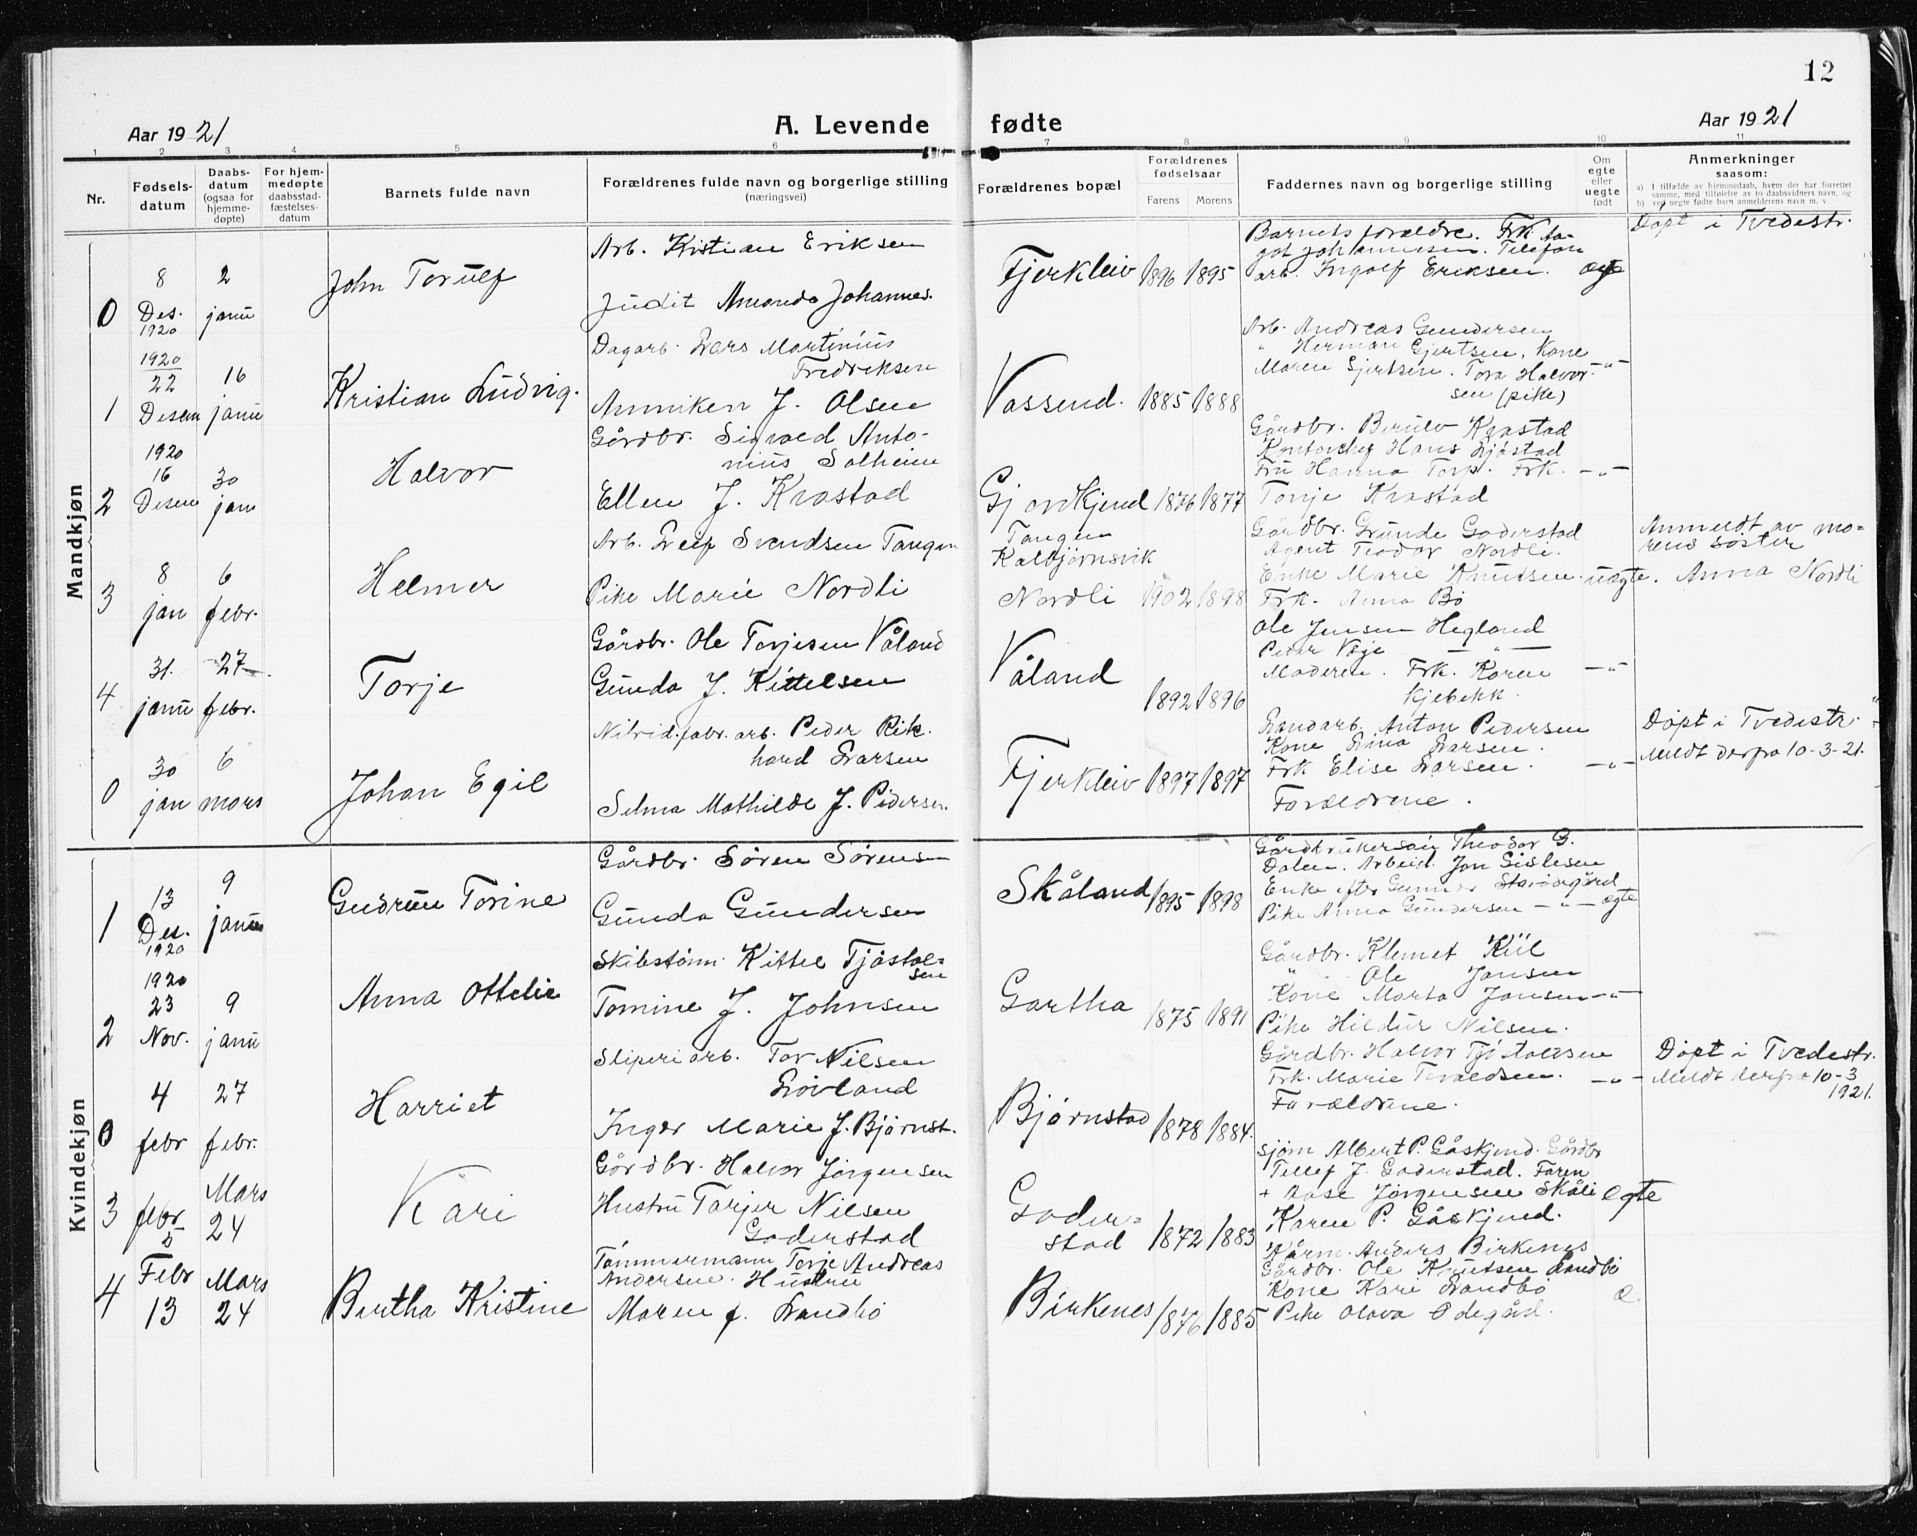 12
Aar 1921
A. Levende fødte
Aar 1921
1 2 3 4 5 6 7 8 9 10 11
Nr.
Fødsels-
datum
Daabs-
datum
(ogsaa for
hjemme-
døpte)
For hjem-
medøpte
daabsstad-
fæstelses-
datum
Barnets fulde navn
Forældrenes fulde navn og borgerlige stilling
(næringsvei)
Forældrenes bopæl
Forældrenes
fødselsaar
Farens Morens
Faddernes navn og borgerlige stilling
Om
egte
eller
uegte
født
Anmerkninger
saasom:
a) I tilfælde av hjemmedaab, hvem der har forrettet
samme, med tilføielse av to daabsvidners navn, og
b) ved uegte fødte barn anmelderens navn m. v.
Mandkjøn
0
8
Des.
1920
2
janu
John Torulf
Arb. Kristian Eriksen
Judit Amanda Johannes.
Fjerkleiv
1896 1895
Barnets foreldre. Frk. Aa-
got Johannesen. Telefon
arb. Ingolf Eriksen.
egte
Døpt i Tvedestr.
1
1920
22
Desem
16
janu
Kristian Ludvig.
Dagarb. Lars Martinius
Fredriksen
Anniken J. Olsen
Vassend.
1885 1888
Arb. Andreas Gundersen
" Herman Gjertsen, Kone
Maren Gjertsen. Tora Halvor-
sen (pike)
-"-
2
1920
16
Desem
30
jan
Halvor
Gårdbr. Sigvald Anto-
nius Solheim
Ellen J. Krastad
Gjovkjend
1876 1877
Gårdbr. Berulv Krastad
Kontorchef Hans Sjåstad
Fru Hanna Torp. Frk.
Tonje Krastad
-"-
3
8
jan
6
febr.
Helmer
Arb. Leif Svendsen Tangen
Pike Marie Nordli
Tangen
Kalbjørnsvik
Nordli
1902 1898
Gårdbr. Grunde Goderstad
Agent Teodor Nordli.
Enke Marie Knutsen.
Frk. Anna Bø
uegte.
Anmeldt av mo-
rens søster
Anna Nordli
4
31.
janu
27
febr.
Torje
Gårdbr. Ole Torjesen Våland
Gunda J. Kittelsen
Våland
1892 1896
Ole Jensen Hegland
Peder Veje — " —
Moderen. Frk. Karen
Kjebekk.
-"-
0
30
jan
6
mars
Johan Egil
Nitrid.fabr.arb. Peder Rik.
hard Larsen
Selma Mathilde J. Pedersen.
Fjerkleiv
1897 1897
Landarb. Anton Pedersen
Kone Lina Larsen.
Frk Elise Larsen.
Forældrene.
-"-
Døpt i Tvedestr.
Meldt derfra 10-3-21.
Kvindekjøn
1
13
Des.
1920
9
janu
Gudrun Torine
Gårdbr. Søren Sørensen
Gunda Gundersen
Skåland
1895 1898
Gårdbrukersøn Theodor G.
Dalen. Arbeid. Jon Sislesen
Enke efter Gunner
Pike Anna Gundersen — " —
egte
2
1920
23
Nov.
9
janu
Anna Ottelie
Skibstømr. Kittel Tjøstol-
sen
Tomine J. Johnsen
Gartha
1875 1891
Gårdbr. Klemet Kiil
Ole Jansen
Kone Marta Jansen
Pike Hildur Nilsen.
-"-
0
4
febr
27
febr.
Harriet
Sliperiarb. Tor Nilsen
Løvland
Inger Marie J. Bjørnst.
Bjørnstad
1878 1884.
Gårdbr. Halvor Tjøstolvsen
Frk. Marie Tovaldsen.
Forældrene.
-"-
Døpt i Tvedestr.
Meldt derfra 10-3
1921.
3
febr
5
Mars
24
Kari
Gårdbr. Halvor Jørgensen
Hustru Torjer Nilsen
Goderstad
Goder-
stad
1872 1883
sjøm Albert P. Gåskjend. Gårdbr
Tellef J. Goderstad. Faren
+ Aase Jørgensen Skåli
Karen P. Gåskjend.
egte
4
Febr
13
Mars
24
Bertha Kristine
Tømmermann Torje Andreas
Andersen. Hustru
Maren f. Landbø
Birkenes
1876 1885
Anders Birkenes
Gårdbr. Ole Knutsen Landbø
Kone Kari Landbø
Pike Olava Ødegård.
e.